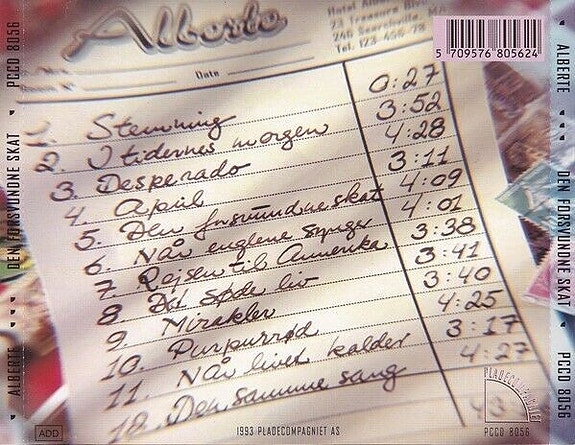 Alberte
Hotel
23 Treasure
Tel. 123-456-78
Date
5 709576 805624
1. Stemning 0:27
2. I tidernes morgen 3:52
3. Desperado 4:28
4. April 3:11
5. Den forsvundne skat 4:09
6. Når englene synger 4:01
7 Rejsen til Amerika 3:38
8 Det søde liv 3:41
9. Mirakler 3:40
10. Purpurrød 4:25
11. Når livet kalder 3:17
12. Den samme sang 4:27
ADD
1993 PLADECOMPAGNIET AS
PLADECOMPAGNIET
PCCD 8056
ALBERTE ♥♥♥ DEN FORSVUNDNE SKAT PCCD 8056
ALBERTE ♥♥♥ DEN FORSVUNDNE SKAT PCCD 8056